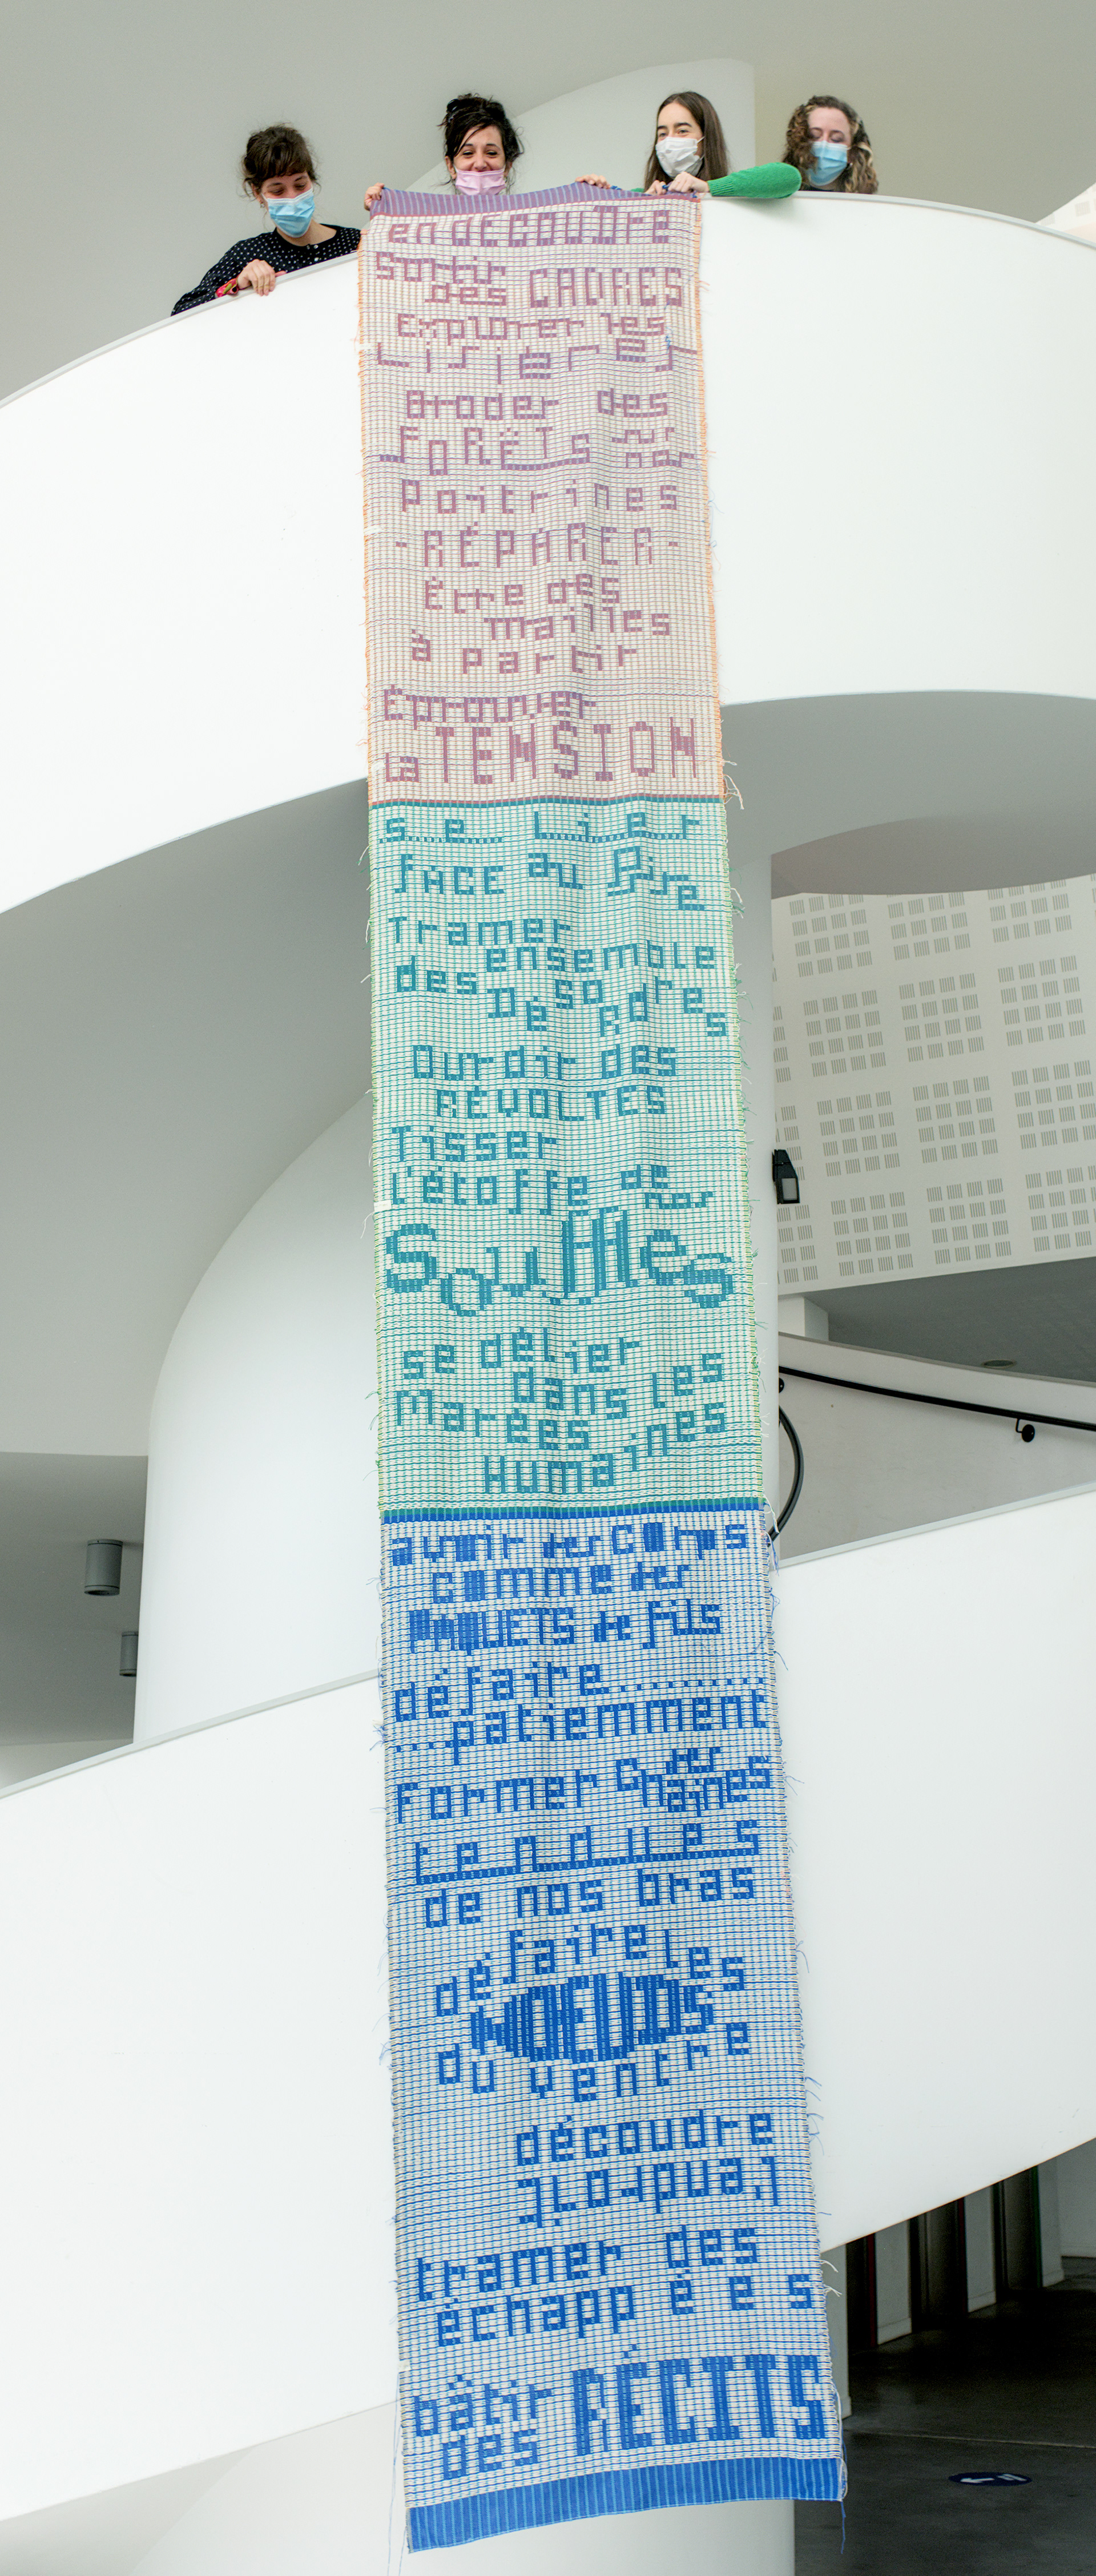 en découdre
Sortir
des CADRES
Explorer les
Lisières
Broder des
FORÊTS sur
nos
Poitrines
-RÉPARER-
Être des
mailles
à partir
Éprouver
la TENSION
se Lier
FACE au Pire
Tramer
ensemble
des Désordres
Ourdir des
RÉVOLTES
Tisser
L'étoffe de
nos
Souffles
se délier
dans les
Marées
Humaines
avoir des Corps
comme des
PAQUETS de fils
défaire..........
...patiemment
Former des
Chaînes
tendues
de nos bras
défaire les
NOEUDS
du ventre
découdre
l'endroit
tramer des
échappées
bâtir RÉCITS
des